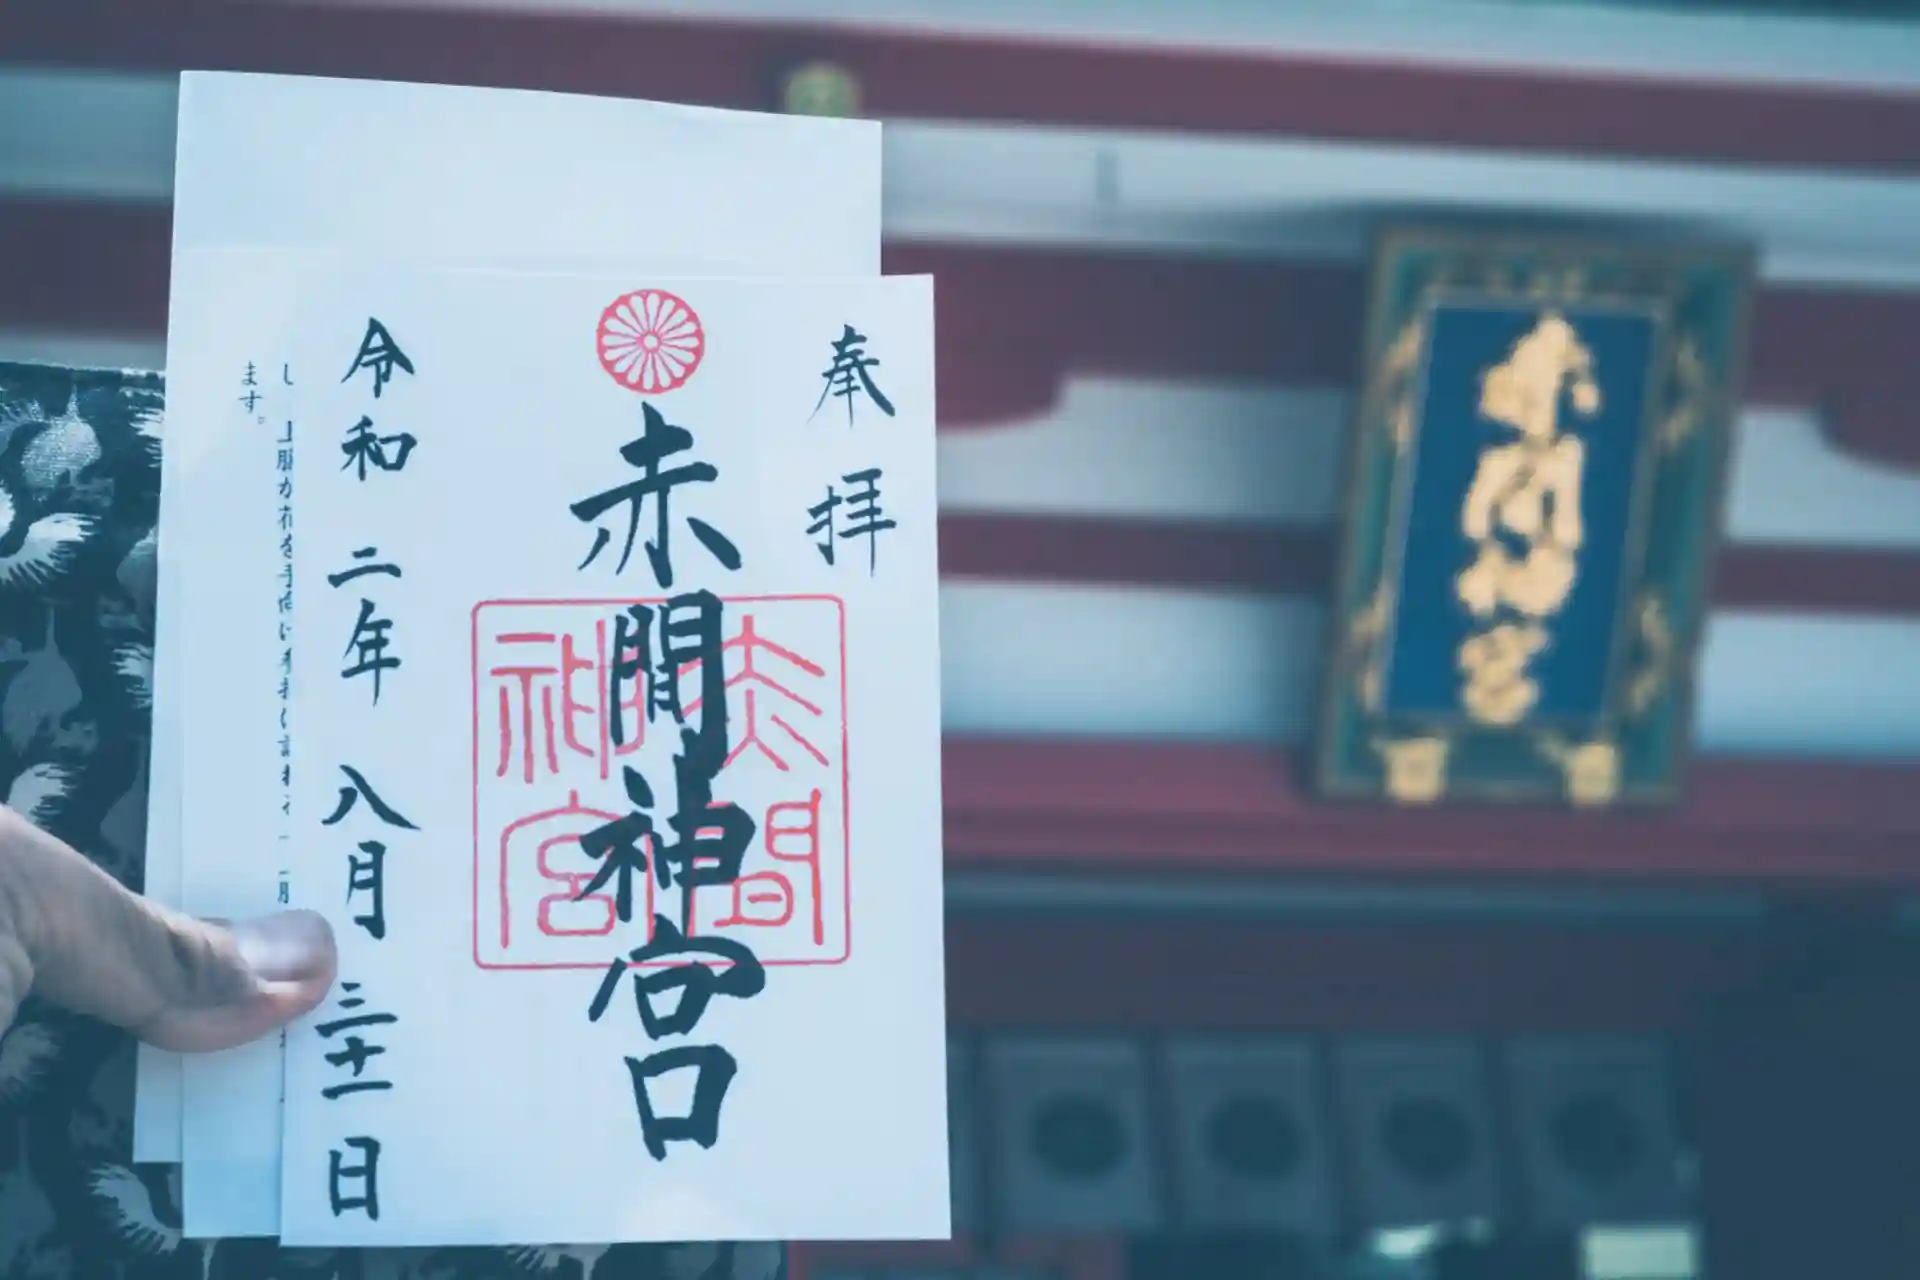 奉拝
赤間神宮
赤間
神宮
令和二年八月三十一日
ます。
赤間神宮